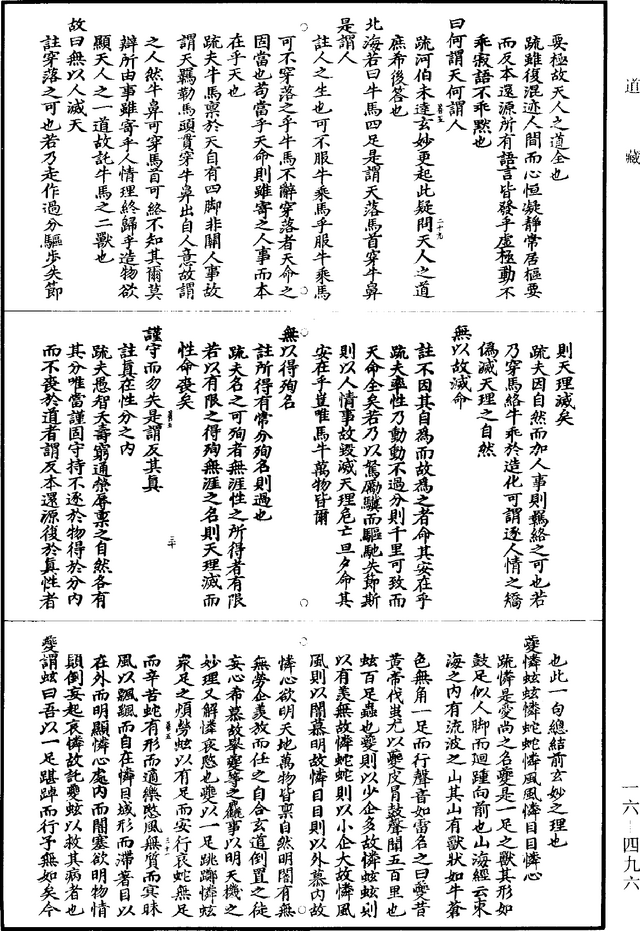 道藏
要極故天人之道全也
疏雖復混迹人間而心恒凝靜常居樞要
而反本還源所有語言皆發乎虛極動不
乖寂語不乖默也
曰何謂天何謂人
疏河伯未達玄妙更起此疑問天人之道
庶希後荅也
二十九
北海若曰牛馬四足是謂天落馬首穿牛鼻
是謂人
註人之生也可不服牛乘馬乎服牛乘馬
可不穿落之乎牛馬不辭穿落者天命之
固當也苟當乎天命則雖寄之人事而本
在乎天也
疏夫牛馬禀於天自有四脚非關人事故
謂天羈勒馬頭貫穿牛鼻出自人意故謂
之人然牛鼻可穿馬首可絡不知其爾莫
辯所由事雖寄乎人情理終歸乎造物欲
顯天人之一道故託牛馬之二獸也
故曰無以人滅天
註穿落之可也若乃走作過分驅步失節
則天理滅矣
疏夫因自然而加人事則羈絡之可也若
乃穿馬絡牛乖於造化可謂逐人情之矯
偽滅天理之自然
無以故滅命
註不因其自為而故為之者命其安在乎
疏夫率性乃動動不過分則千里可致而
天命全矣若乃以駑勵驥而驅馳失節斯
則以人情事故毀滅天理危亡旦夕命其
安在乎豈唯馬牛萬物皆爾
無以得殉名
註所得有常分殉名則過也
疏夫名之可殉者無涯性之所得者有限
若以有限之得殉無涯之名則天理滅而
性命喪矣
三十
謹守而勿失是謂反其真
註真在性分之內
疏夫愚智夭壽窮通榮辱禀之自然各有
其分唯當謹固守持不逐於物得於分內
而不喪於道者謂反本還源復於真性者
也此一句總結前玄妙之理也
夔憐蚿蚿憐蛇蛇憐風風憐目目憐心
疏憐是愛尚之名夔是一足之獸其形如
鼓足似人脚而迴踵向前也山海經云東
海之內有流波之山其山有獸狀如牛蒼
色無角一足而行聲音如雷名之曰夔昔
黃帝伐蚩尤以夔皮冒鼓聲聞五百里也
蚿百足蟲也夔則以少企多故憐蚿蚿則
以有羨無故憐蛇蛇則以小企大故憐風
風則以闇慕明故憐目目則以外慕內故
憐心欲明天地萬物皆禀自然明闇有無
無勞企羨放而任之自合玄道倒置之徒
妄心希慕故舉夔等之麤事以明天機之
妙理又解憐哀愍也夔以一足跳躑憐蚿
衆足之煩勞蚿以有足而安行哀蛇無足
而辛苦蛇有形而適樂愍風無質而冥昧
風以飄颻而自在憐目域形而滯著目以
在外而明顯憐心處內而闇塞欲明物情
顛倒妄起哀憐故託夔蚿以救其病者也
夔謂蚿曰吾以一足趻踔而行予無如矣今
一六–四九六